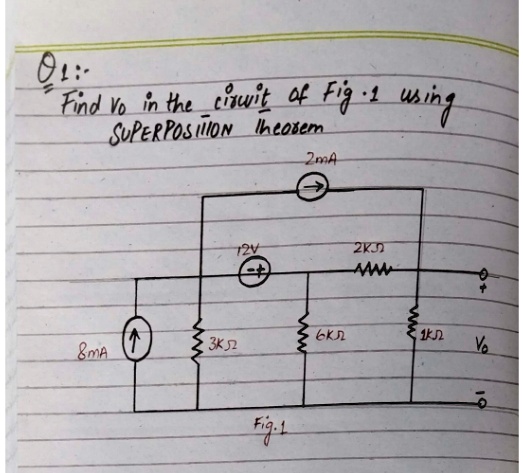 Q1:-
Find Vo in the circuit of Fig.1 using
SUPERPOSITION Theorem
2mA
12V
2KΩ
- +
+
8mA
3KΩ
6KΩ
1KΩ
Vo
-
Fig.1